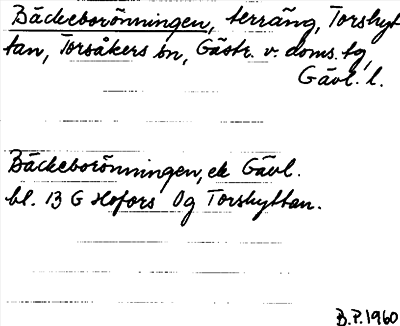 Bäckeborönningen, terräng, Torshyt
tan, Torsåkers sn, Gästr. v. doms. tg,
Gävl. l.
Bäckeborönningen, ek Gävl.
bl. 13 G Hofors Og Torshyttan.
B.P. 1960